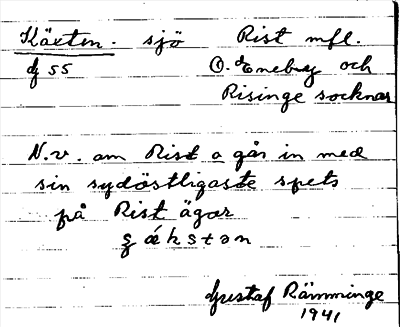 Käxten. sjö Rist mfl.
dj 55 Ö. Eneby och
Risinge socknar
N.v. om Rist o går in med
sin sydöstligaste spets
på Rist ägor
Gustaf Rämminge
1941